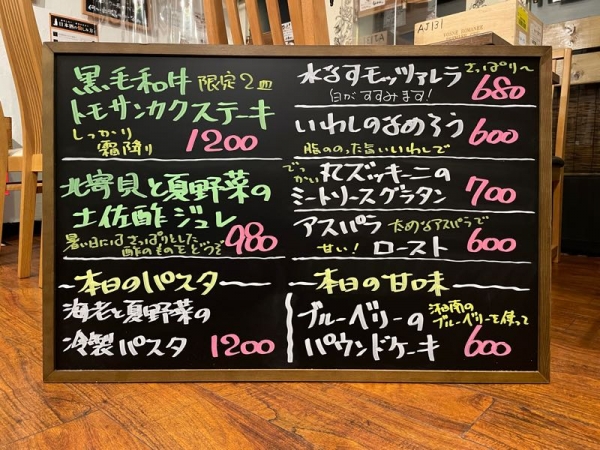 黒毛和牛 限定2皿
トモサンカクステーキ
しっかり
霜降り 1200
北寄貝と夏野菜の
土佐酢ジュレ
暑い日にはさっぱりとした
酢のものをどうぞ 980
〜本日のパスタ〜
海老と夏野菜の
冷製パスタ 1200
水なすモッツァレラ さっぱり〜
白がすすみます! 680
いわしのなめろう 600
脂ののった旨いいわしで
でっかい 丸ズッキーニの
ミートソースグラタン 700
アスパラ 太めなアスパラで
甘い! ロースト 600
〜本日の甘味〜
ブルーベリーの 湘南の
ブルーベリーを使って
パウンドケーキ 600
AJ131